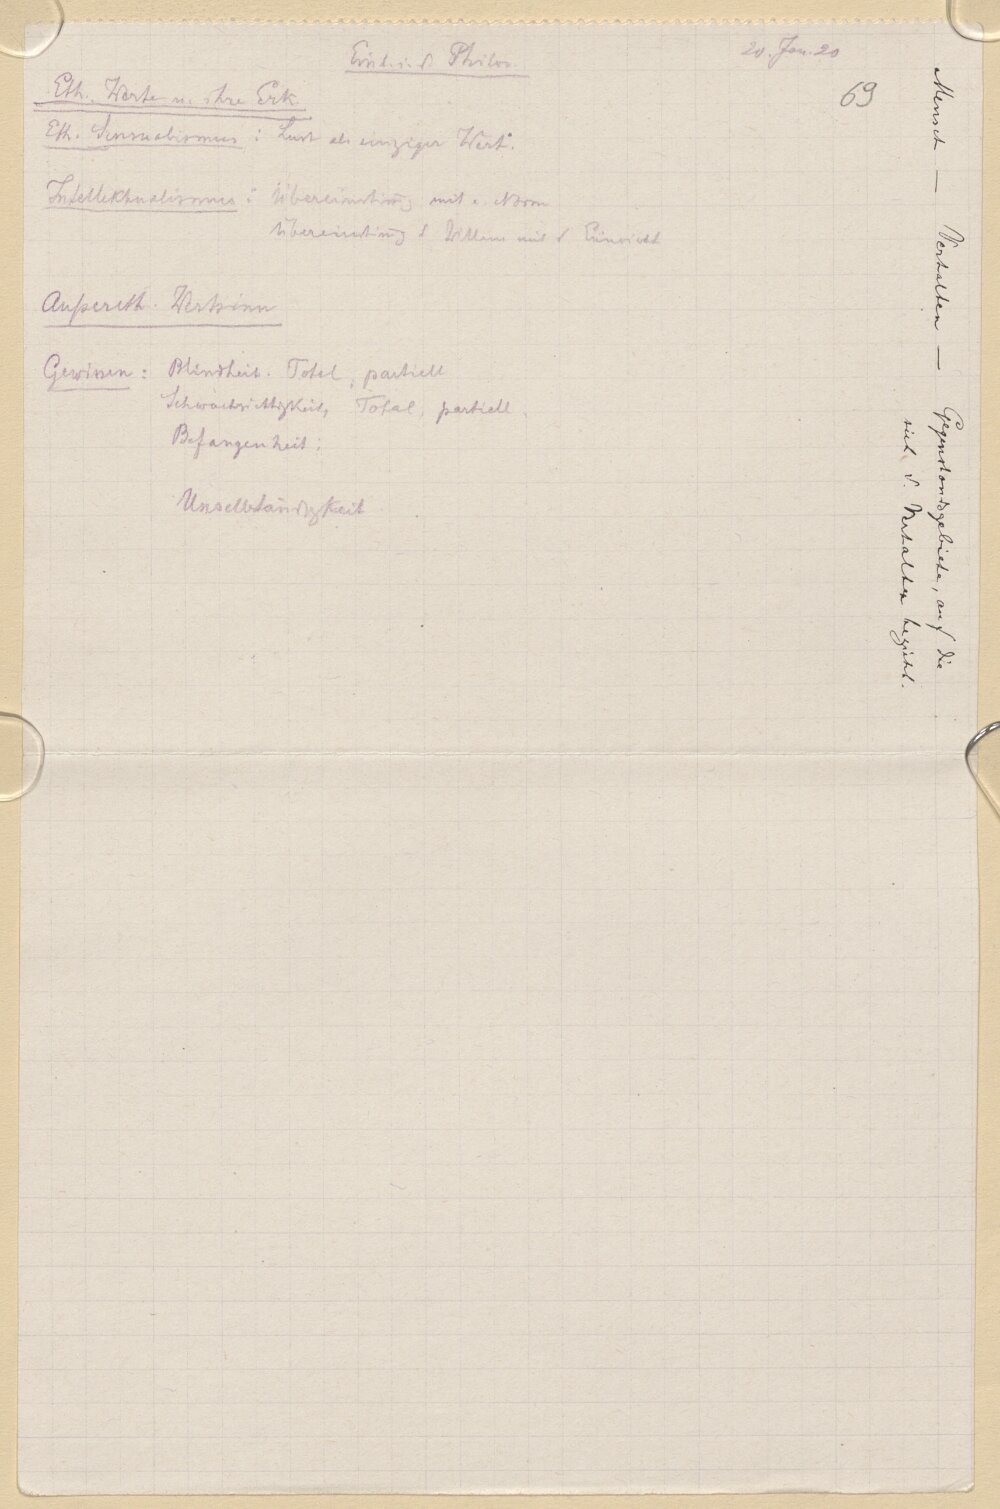 Einl. i. d. Philos.
20. Jan. 20
69
Eth. Werte u. ihre Erk.
Eth. Sensualismus : Lust als einziger Wert.
Intellektualismus : Übereinstimg mit e. Norm
Übereinstimg d Willens mit d Einsicht
Außereth. Wertsinn
Gewissen : Blindheit. Total, partiell
Schwachsichtigkeit, Total, partiell.
Befangenheit ;
Unselbständigkeit
Mensch — Verhalten — Gegenstandsgebiete, auf die
sich d. Verhalten bezieht.